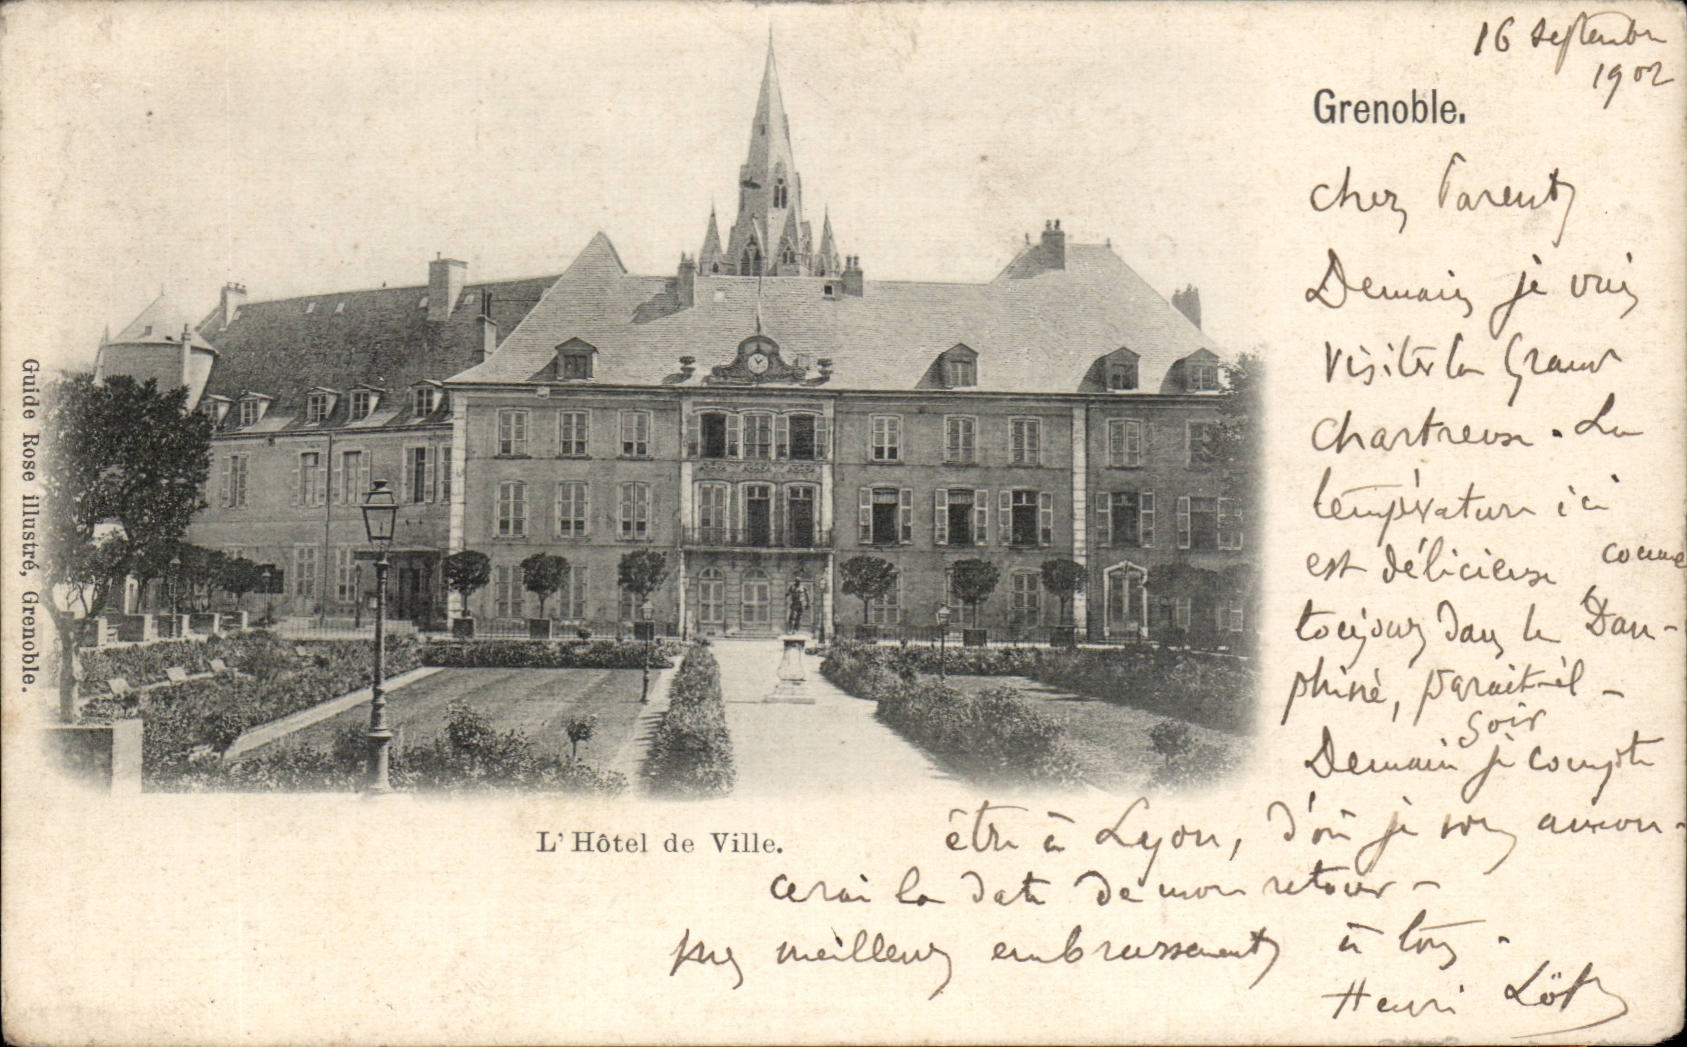 16 septembre
1902
Grenoble.
chers Parents
Demain je vais
visiter la Grande
Chartreuse. La
température ici
est délicieuse comme
toujours dans le Dau-
phiné, parait-il -
Demain soir je compte
être à Lyon, d'où je vous annon-
cerai la date de mon retour -
Mes meilleurs embrassements à tous.
Henri
L'Hôtel de Ville.
Guide Rose illustré, Grenoble.